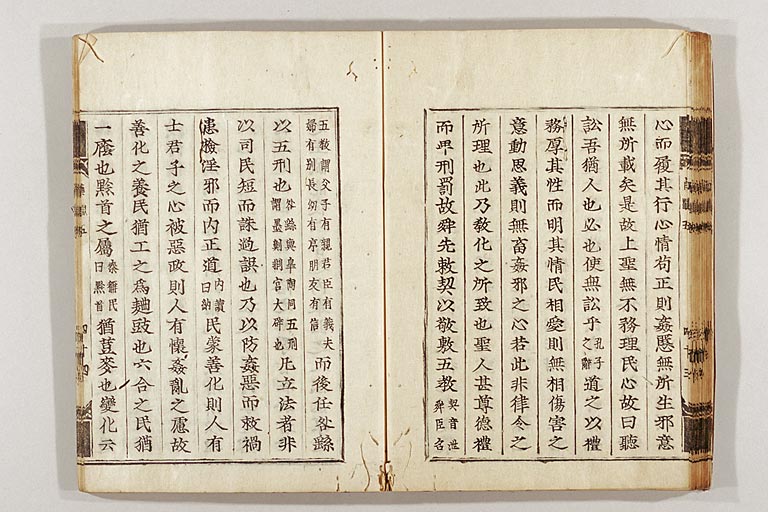 心而履其行心情苟正則姦慝無所生邪意
無所載矣是故上聖無不務理民心故曰聽
訟吾猶人也必也使無訟乎孔子之辭道之以禮
務厚其性而明其情民相愛則無相傷害之
意動思義則無畜姦邪之心若此非律令之
所理也此乃敎化之所致也聖人甚尊德禮
而卑刑罰故舜先敕契以敬敷五敎契音泄舜臣名
五敎謂父子有親君臣有義夫婦有別長幼有序朋友有信而後任咎繇
以五刑也咎繇與皐陶同五刑謂墨劓剕宮大辟也凡立法者非
以司民短而誅過誤也乃以防姦惡而救禍
患檢淫邪而內正道內讀曰納民蒙善化則人有
士君子之心被惡政則人有懷姦亂之慮故
善化之養民猶工之爲麯豉也六合之民猶
一廕也黔首之屬秦謂民曰黔首猶荳麥也變化云